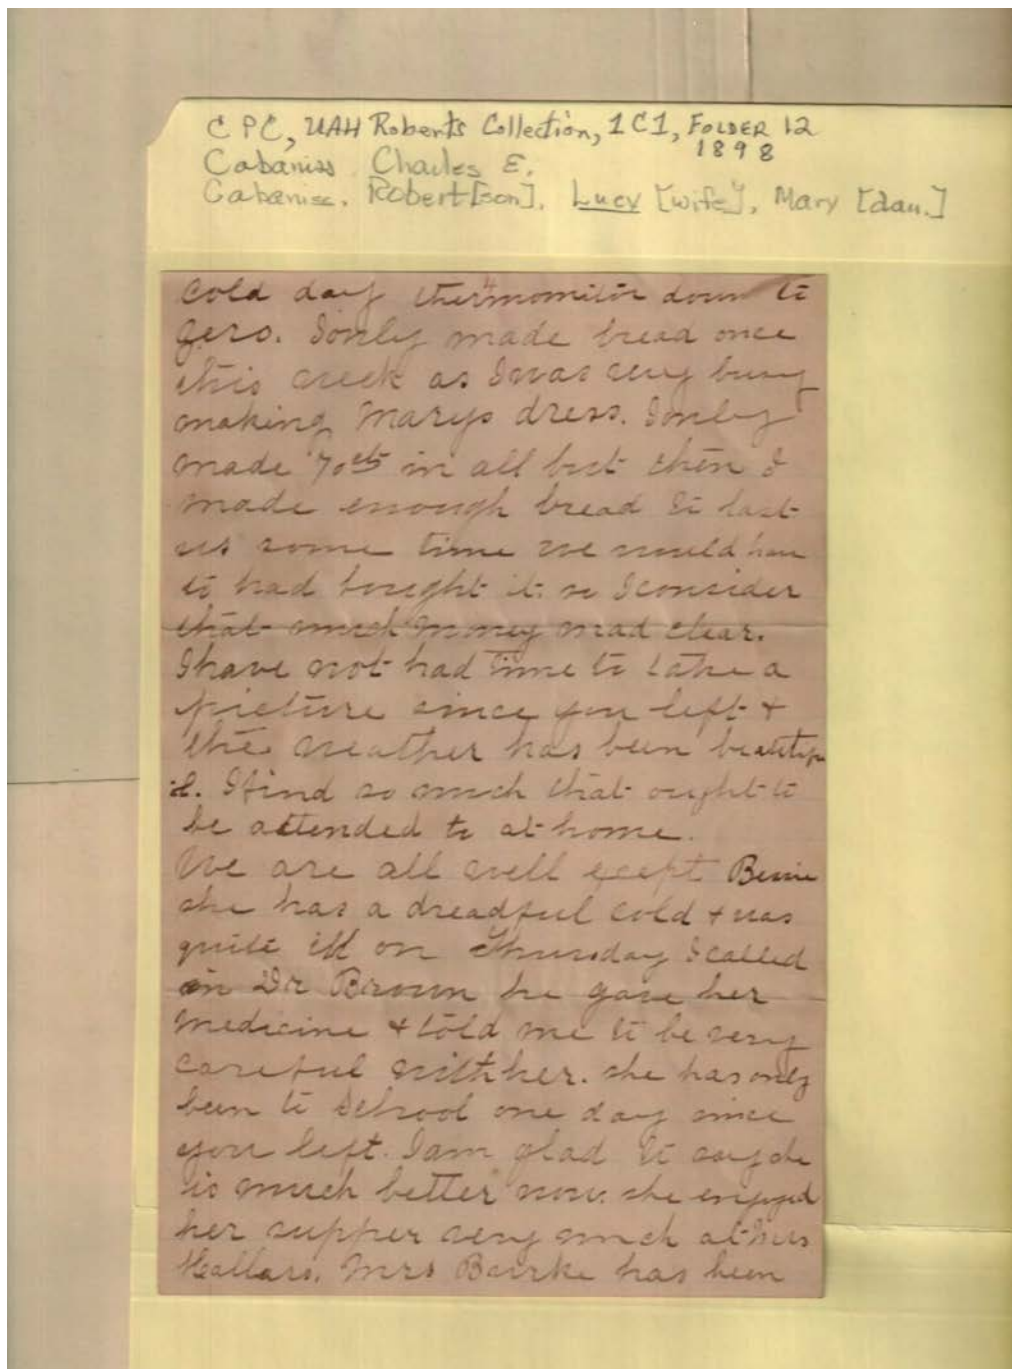 CPC, UAH Roberts Collection, 1C1, FOLDER 12
1898
Cabaniss, Charles E.
Cabaniss, Robert [son], Lucy [wife], Mary [dau.]
4
Cold day thermomiter down to
zero. I only made bread once
this week as I was very busy
making Marys dress. I only
made 70cts in all but then I
made enough bread to last
us some time we would have
to had bought it. so I consider
that much money mad clear.
I have not had time to take a
picture since you left &
the weather has been beautifu
l. I find so much that ought to
be attended to at home.
We are all well exept
she has a dreadful cold & was
quite ill on Thursday I called
in Dr Brown he gave her
medicine & told me to be very
careful with her. she has only
been to School one day since
you left. I am glad to say she
is much better now. she enjoyed
her supper very much at Mrs
Hallars. Mrs Bourke has been